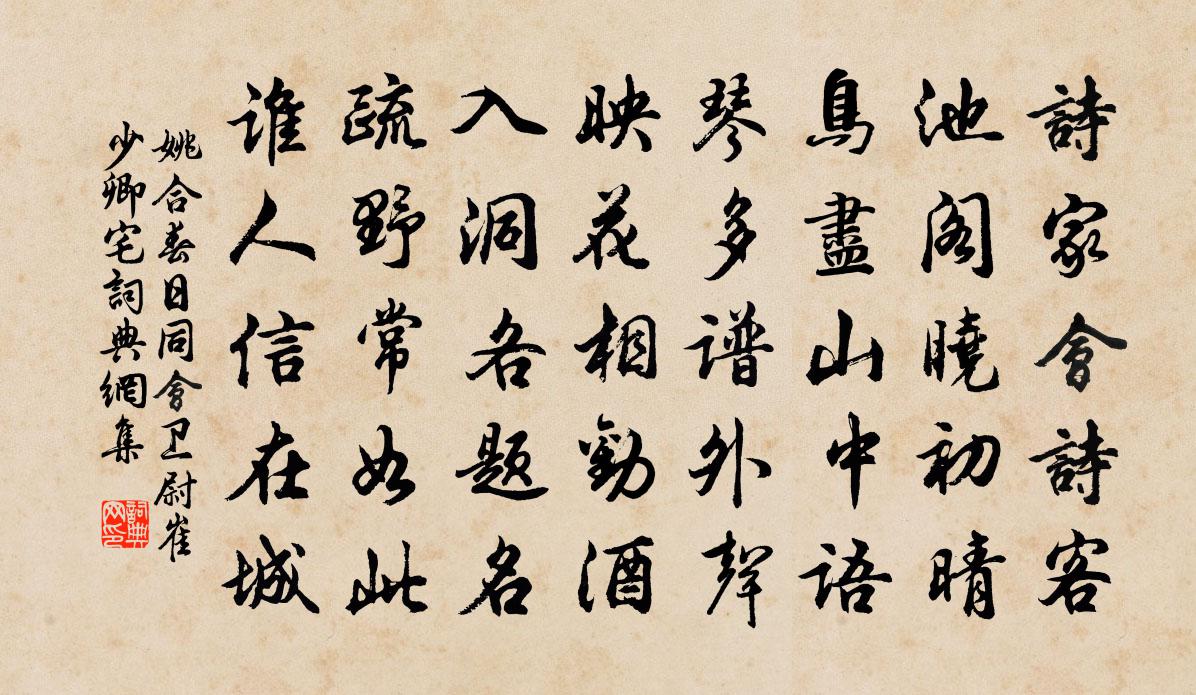 詩家會詩客
池阁曉初晴
鳥盡山中語
琴多谱外聲
映花相勸酒
入洞各题名
疏野常如此
谁人信在城
姚合春日同會卫尉崔
少卿宅詞典網集
詞典
网印